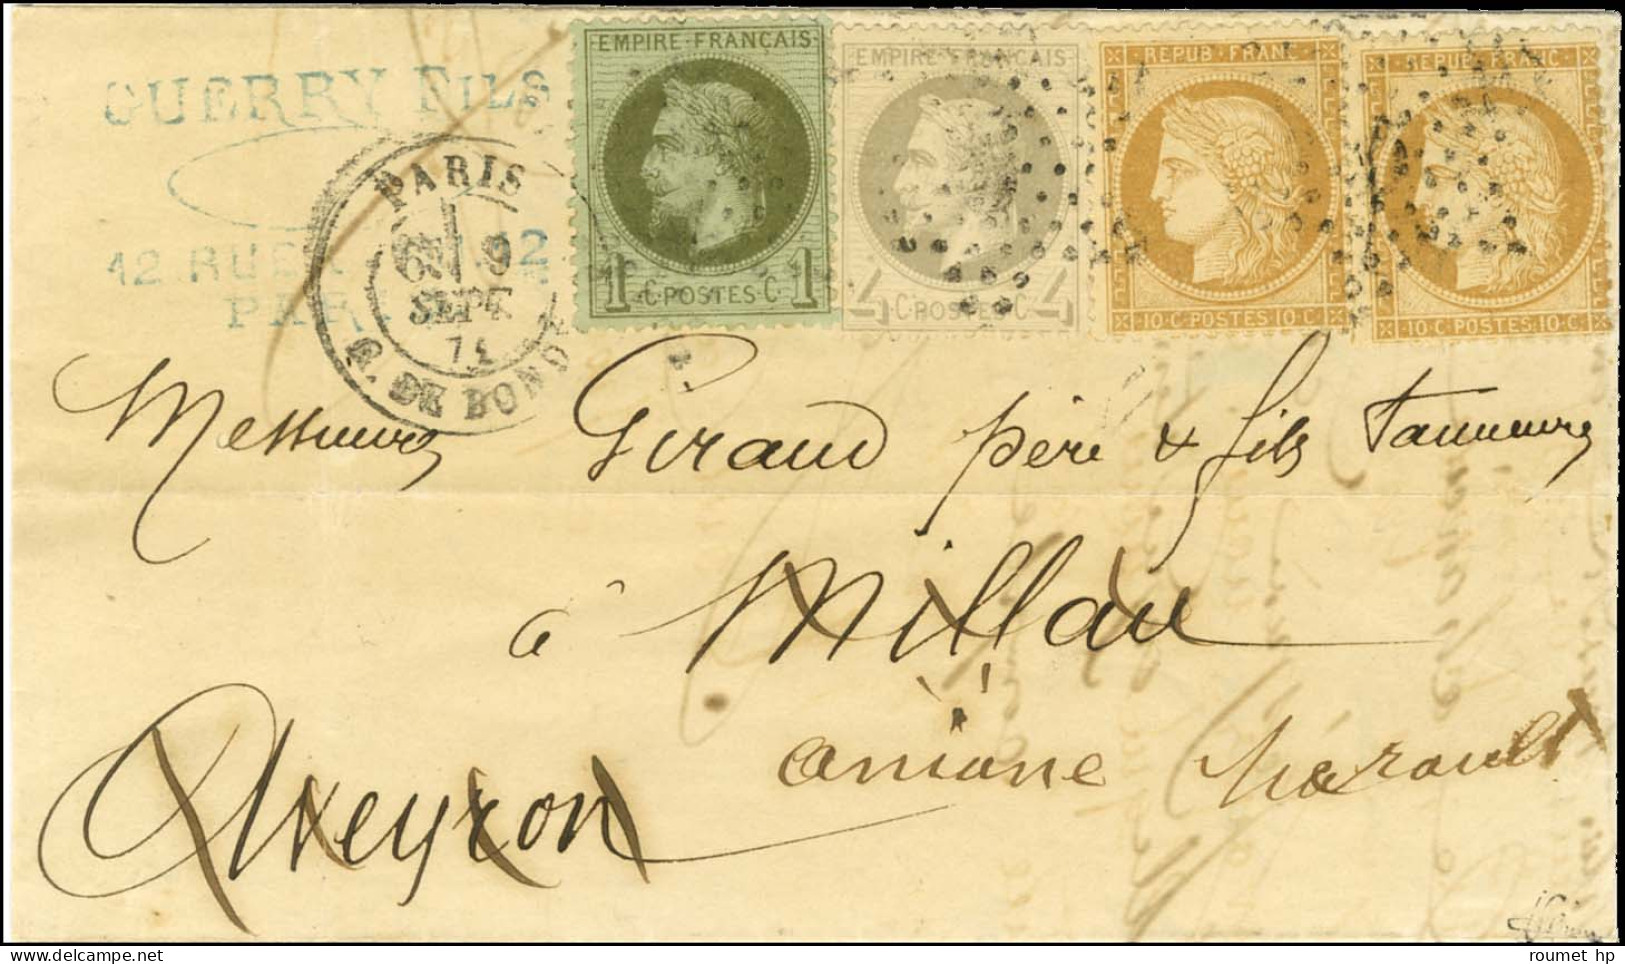 GUERRY FILS
12 RUE
PARI
PARIS
6E 9
SEPT
71
R. DE BONDY
EMPIRE·FRANCAIS
1 C·POSTES·C· 1
EMPIRE·FRANCAIS
4 C POSTES C 4
REPUB·FRANC
10·C·POSTES·10·C
REPUB·FRANC
10·C·POSTES·10·C
Messieurs Giraud père & fils Tanneurs
à Millau
aniane Hérault
Aveyron
© roumet hp